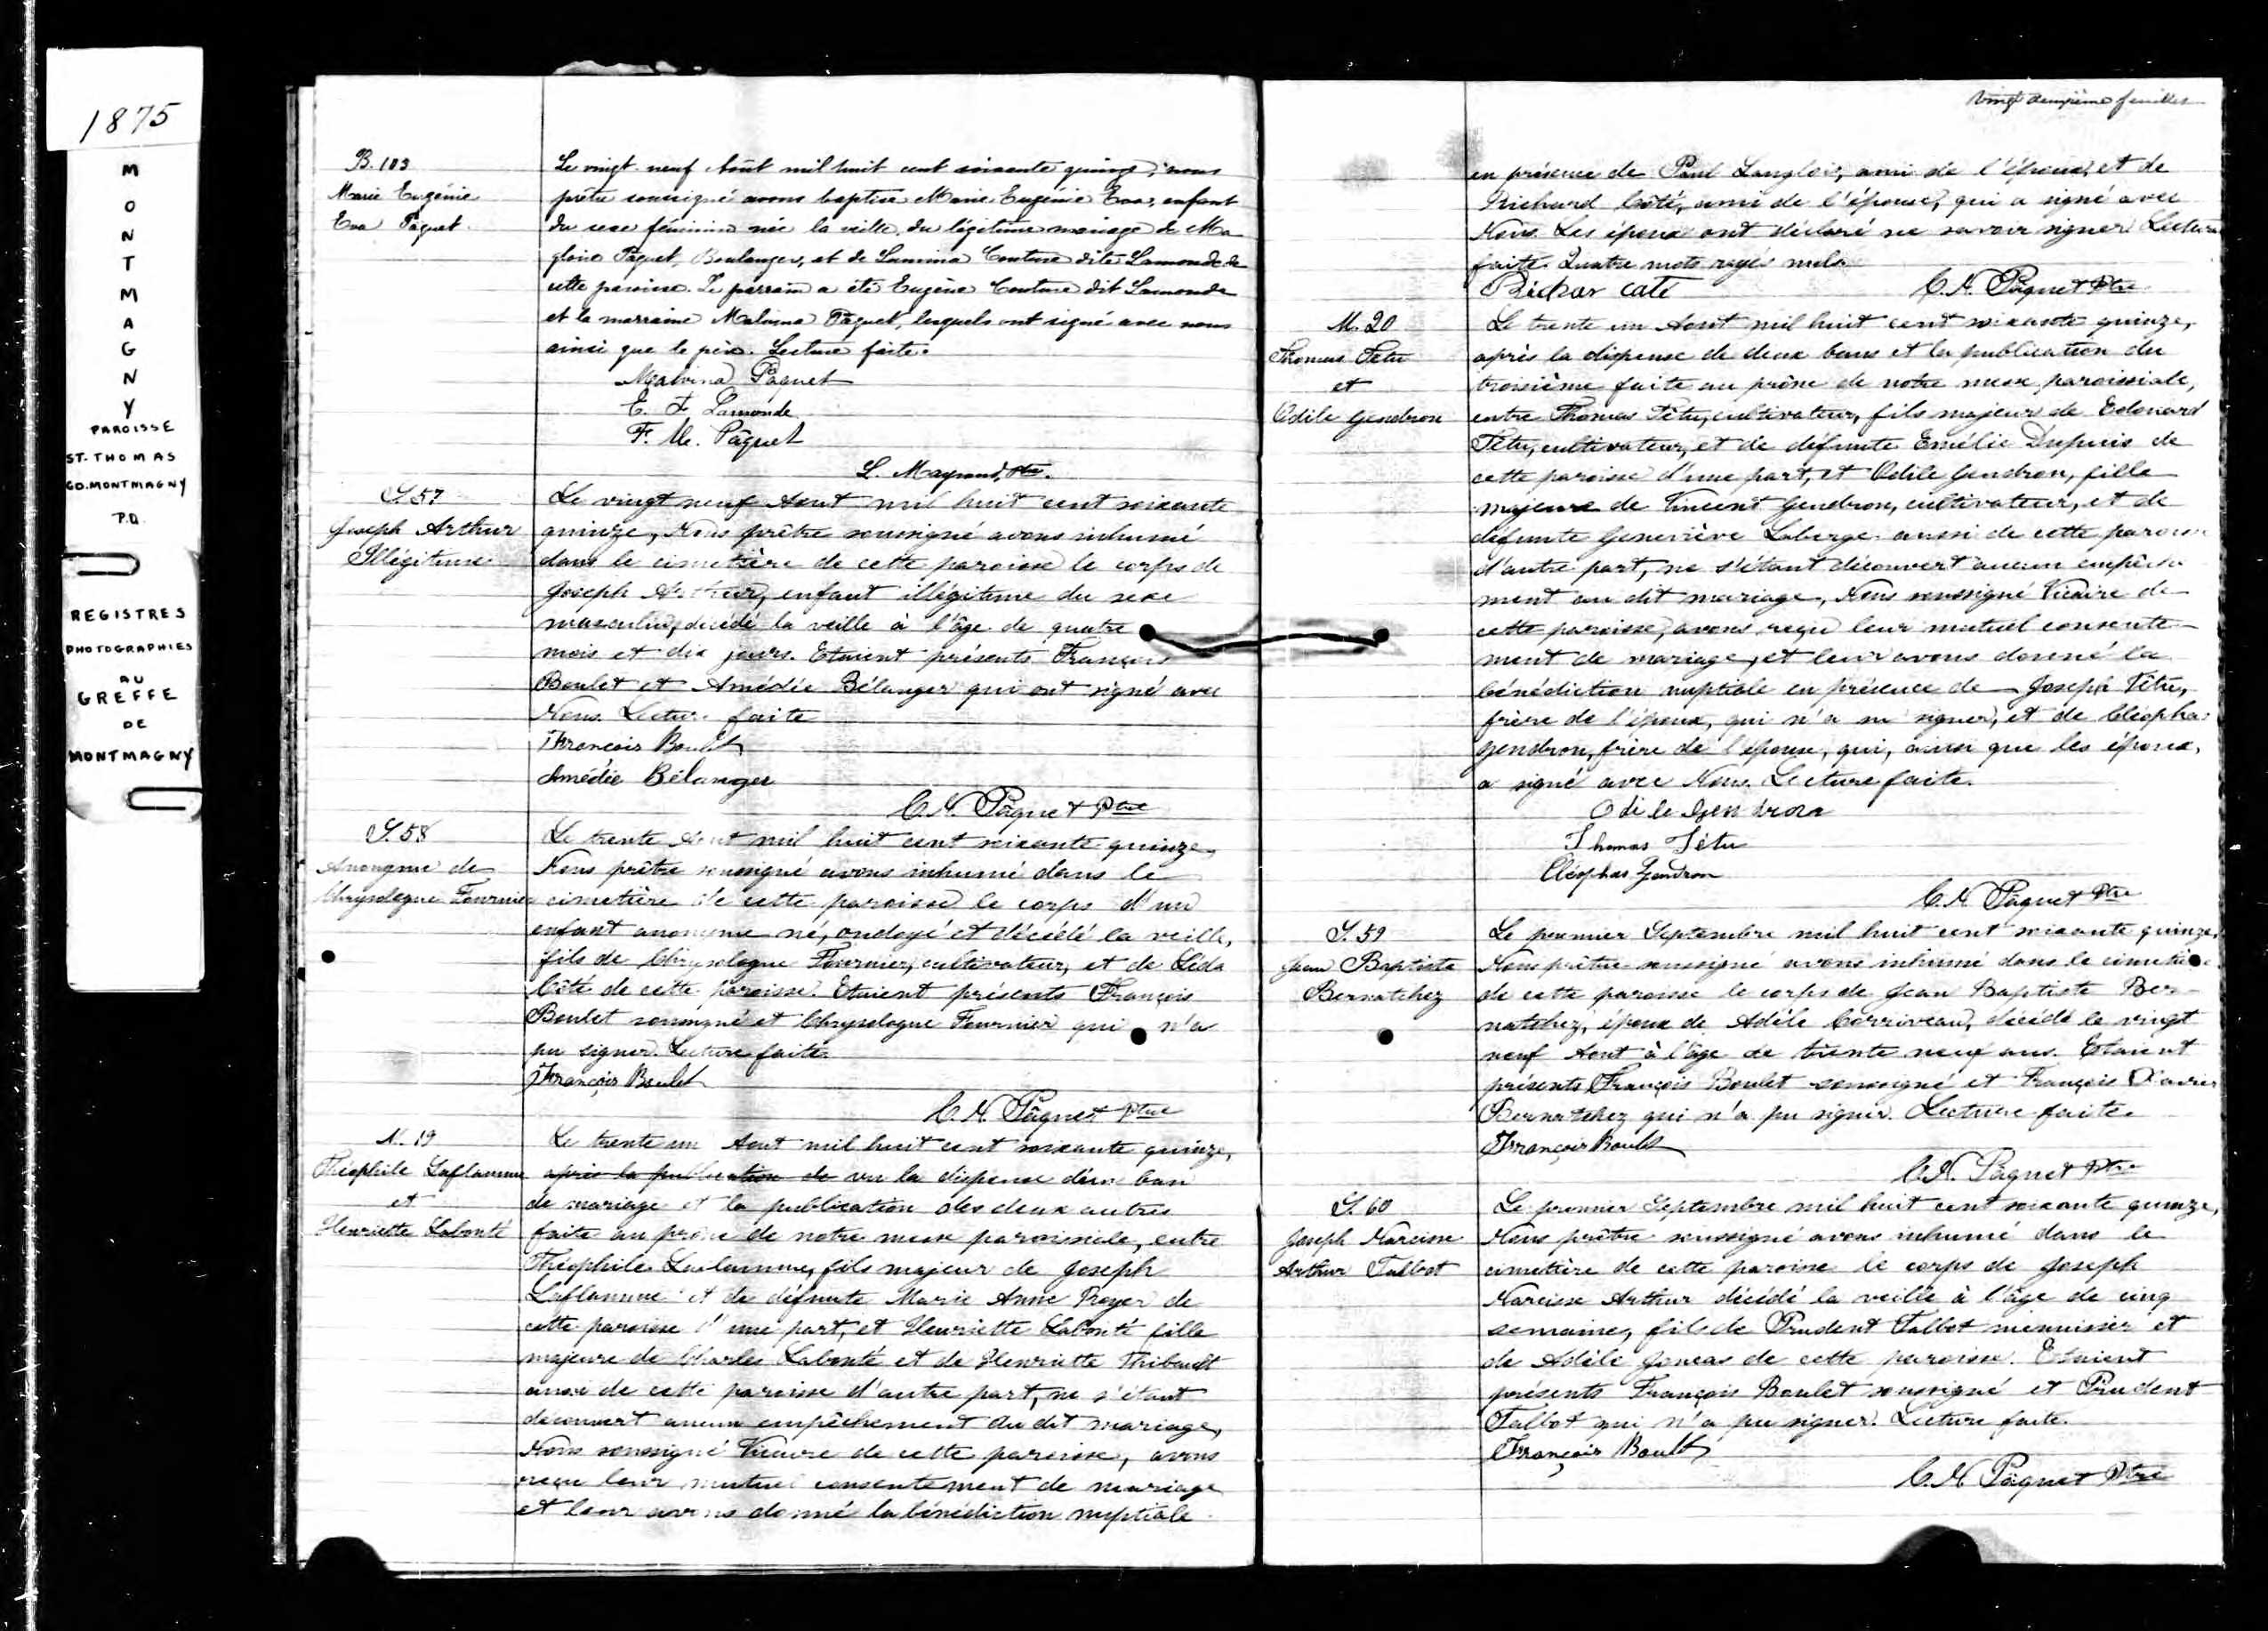 1875
M
O
N
T
M
A
G
N
Y
PAROISSE
ST. THOMAS
CO. MONTMAGNY
P.Q.
REGISTRES
PHOTOGRAPHIES
AU
GREFFE
DE
MONTMAGNY
B. 103
Marie Eugénie
Eva Pâquet
Le vingt-neuf Août mil huit cent soixante quinze, nous
prêtre soussigné avons baptisé Marie Eugénie Eva, enfant
du sexe féminin née la veille, du légitime mariage de Ma
gloire Pâquet, Boulanger, et de Lumina Couture dite Lamonde de
cette paroisse. Le parrain a été Eugène Couture dit Lamonde
et la marraine Malvina Pâquet, lesquels ont signé avec nous
ainsi que le père. Lecture faite.
Malvina Pâquet
E. Lamonde
F. M. Pâquet
L. Mayrand, Ptre.
S. 57
Joseph Arthur
Illégitime
Le vingt neuf Aout mil huit cent soixante
quinze, Nous prêtre soussigné avons inhumé
dans le cimetière de cette paroisse le corps de
Joseph Arthur, enfant illégitime du sexe
masculin, décédé la veille à l'âge de quatre
mois et dix jours. Etaient présents François
Boulet et Amédée Bélanger qui ont signé avec
Nous. Lecture faite
François Boulet
Amédée Bélanger
C. N. Pâquet Ptre
S. 58
Anonyme de
Chrysologue Fournier
Le trente Aout mil huit cent soixante quinze,
Nous prêtre soussigné avons inhumé dans le
cimetière de cette paroisse le corps d'un
enfant anonyme né, ondoyé et décédé la veille,
fils de Chrysologue Fournier, cultivateur, et de Léda
Côté de cette paroisse. Etaient présents François
Boulet soussigné et Chrysologue Fournier qui n'a
pu signer. Lecture faite.
François Boulet
C. N. Pâquet Ptre
M. 19
Théophile Laflamme
et
Henriette Labonté
Le trente un Aout mil huit cent soixante quinze,
après la publication de vu la dispense d'un ban
de mariage et la publication des deux autres
faite au prône de notre messe paroissiale, entre
Théophile Laflamme, fils majeur de Joseph
Laflamme et de défunte Marie Anne Proyer de
cette paroisse d'une part, et Henriette Labonté fille
majeure de Charles Labonté et de Henriette Thibault
aussi de cette paroisse d'autre part, ne s'étant
découvert aucun empêchement au dit mariage,
Nous soussigné Vicaire de cette paroisse, avons
reçu leur mutuel consentement de mariage
et leur avons donné la bénédiction nuptiale
Vingt deuxième feuillet
en présence de Paul Langlois, ami de l'époux, et de
Richard Côté, ami de l'épouse, qui a signé avec
Nous. Les époux ont déclaré ne savoir signer. Lecture
faite. Quatre mots rayés nuls.
Richar caté
C. N. Pâquet Ptre
M. 20
Thomas Têtu
et
Odile Gendron
Le trente un Aout mil huit cent soixante quinze,
après la dispense de deux bans et la publication du
troisième faite au prône de notre messe paroissiale,
entre Thomas Têtu, cultivateur, fils majeur de Edouard
Têtu, cultivateur, et de défunte Emélie Dupuis de
cette paroisse d'une part, et Odile Gendron, fille
majeure de Vincent Gendron, cultivateur, et de
défunte Geneviève Laberge aussi de cette paroisse
d'autre part, ne s'étant découvert aucun empêche
ment au dit mariage, Nous soussigné Vicaire de
cette paroisse, avons reçu leur mutuel consente-
ment de mariage, et leur avons donné la
bénédiction nuptiale en présence de Joseph Têtu,
frère de l'époux, qui n'a su signer, et de Cléophas
Gendron, frère de l'épouse, qui, ainsi que les époux,
a signé avec Nous. Lecture faite.
Odile Gendron
Thomas Têtu
Cléophas Gendron
C. N. Pâquet Ptre
S. 59
Jean Baptiste
Bernatchez
Le premier Septembre mil huit cent soixante quinze,
Nous prêtre soussigné avons inhumé dans le cimetière
de cette paroisse le corps de Jean Baptiste Ber-
natchez, époux de Adèle Corriveau, décédé le vingt
neuf Aout à l'âge de trente neuf ans. Etaient
présents François Boulet soussigné et François Xavier
Bernatchez qui n'a pu signer. Lecture faite.
François Boulet
C. N. Pâquet Ptre
S. 60
Joseph Narcisse
Arthur Talbot
Le premier Septembre mil huit cent soixante quinze,
Nous prêtre soussigné avons inhumé dans le
cimetière de cette paroisse le corps de Joseph
Narcisse Arthur décédé la veille à l'âge de cinq
semaines, fils de Prudent Talbot menuisier et
de Adèle Joncas de cette paroisse. Etaient
présents François Boulet soussigné et Prudent
Talbot qui n'a pu signer. Lecture faite.
François Boulet
C. N. Pâquet Ptre